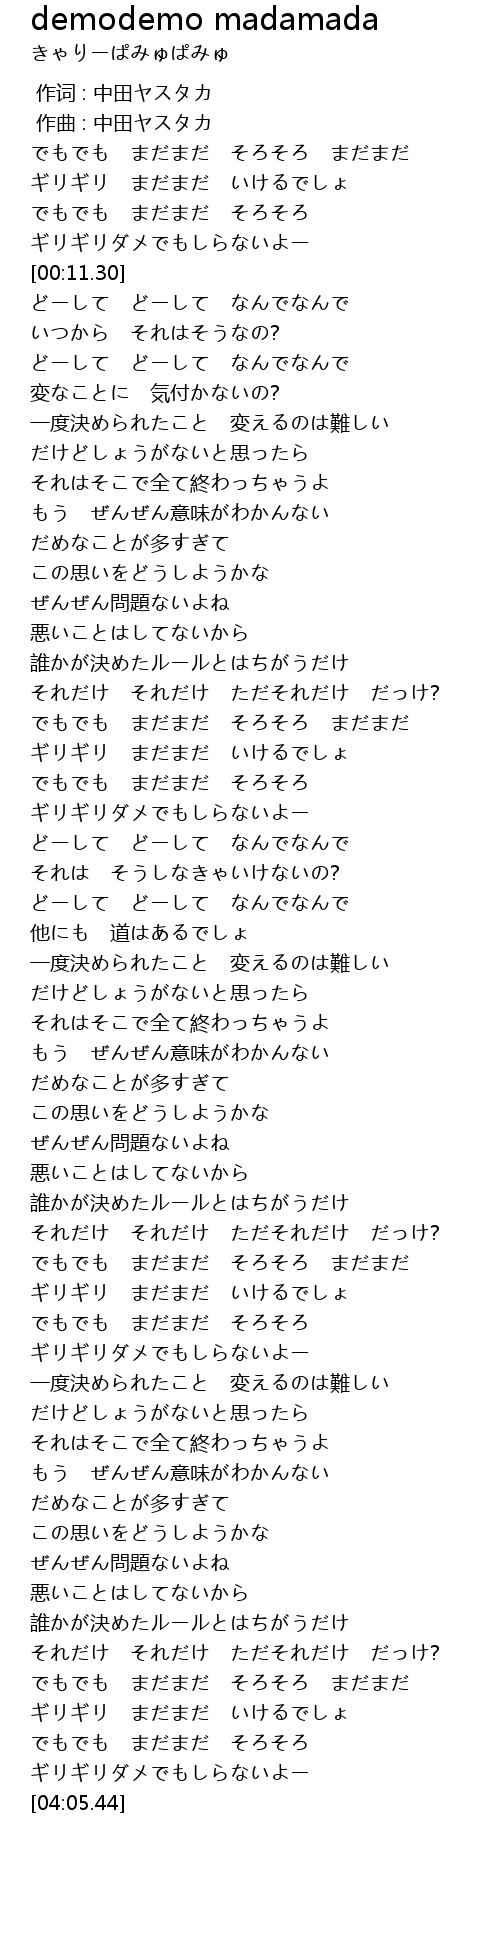 demodemo madamada
きゃりーぱみゅぱみゅ
作词 : 中田ヤスタカ
作曲 : 中田ヤスタカ
でもでも　まだまだ　そろそろ　まだまだ
ギリギリ　まだまだ　いけるでしょ
でもでも　まだまだ　そろそろ
ギリギリダメでもしらないよー
[00:11.30]
どーして　どーして　なんでなんで
いつから　それはそうなの?
どーして　どーして　なんでなんで
変なことに　気付かないの?
一度決められたこと　変えるのは難しい
だけどしょうがないと思ったら
それはそこで全て終わっちゃうよ
もう　ぜんぜん意味がわかんない
だめなことが多すぎて
この思いをどうしようかな
ぜんぜん問題ないよね
悪いことはしてないから
誰かが決めたルールとはちがうだけ
それだけ　それだけ　ただそれだけ　だっけ?
でもでも　まだまだ　そろそろ　まだまだ
ギリギリ　まだまだ　いけるでしょ
でもでも　まだまだ　そろそろ
ギリギリダメでもしらないよー
どーして　どーして　なんでなんで
それは　そうしなきゃいけないの?
どーして　どーして　なんでなんで
他にも　道はあるでしょ
一度決められたこと　変えるのは難しい
だけどしょうがないと思ったら
それはそこで全て終わっちゃうよ
もう　ぜんぜん意味がわかんない
だめなことが多すぎて
この思いをどうしようかな
ぜんぜん問題ないよね
悪いことはしてないから
誰かが決めたルールとはちがうだけ
それだけ　それだけ　ただそれだけ　だっけ?
でもでも　まだまだ　そろそろ　まだまだ
ギリギリ　まだまだ　いけるでしょ
でもでも　まだまだ　そろそろ
ギリギリダメでもしらないよー
一度決められたこと　変えるのは難しい
だけどしょうがないと思ったら
それはそこで全て終わっちゃうよ
もう　ぜんぜん意味がわかんない
だめなことが多すぎて
この思いをどうしようかな
ぜんぜん問題ないよね
悪いことはしてないから
誰かが決めたルールとはちがうだけ
それだけ　それだけ　ただそれだけ　だっけ?
でもでも　まだまだ　そろそろ　まだまだ
ギリギリ　まだまだ　いけるでしょ
でもでも　まだまだ　そろそろ
ギリギリダメでもしらないよー
[04:05.44]